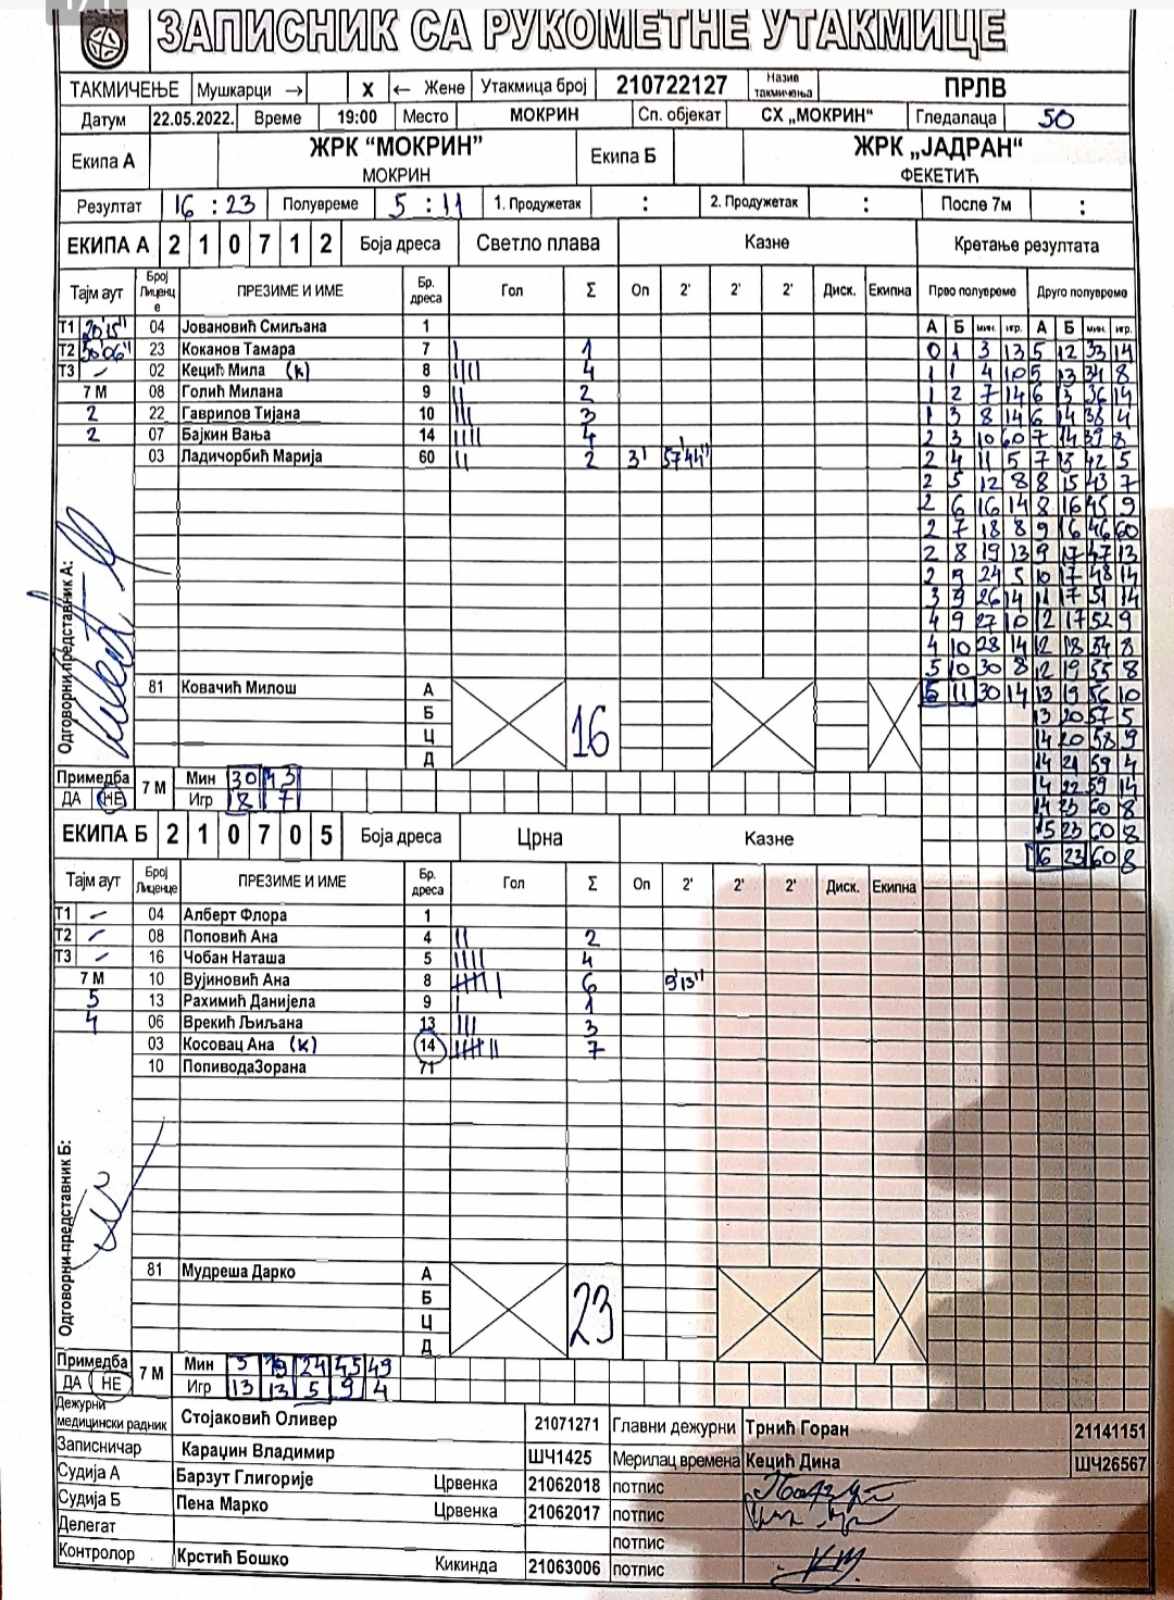 ЗАПИСНИК СА РУКОМЕТНЕ УТАКМИЦЕ
ТАКМИЧЕЊЕ Мушкарци → X ← Жене Утакмица број 210722127 Назив такмичења ПРЛВ
Датум 22.05.2022. Време 19:00 Место МОКРИН Сп. објекат СХ „МОКРИН“ Гледалаца 50
Екипа А ЖРК “МОКРИН” МОКРИН Екипа Б ЖРК „ЈАДРАН“ ФЕКЕТИЋ
Резултат 16 : 23 Полувреме 5 : 11 1. Продужетак : 2. Продужетак : После 7м :
ЕКИПА А 2 1 0 7 1 2 Боја дреса Светло плава Казне Кретање резултата
Тајм аут Број Лиценце ПРЕЗИМЕ И ИМЕ Бр. дреса Гол Σ Оп 2' 2' 2' Диск. Екипна Прво полувреме Друго полувреме
Т1 20'15" 04 Јовановић Смиљана 1 А Б мин. игр. А Б мин. игр.
Т2 50'06" 23 Коканов Тамара 7 | 1 0 1 3 13 5 12 33 14
Т3 – 02 Кецић Мила (к) 8 |||| 4 1 1 4 10 5 13 34 8
7 М 08 Голић Милана 9 || 2 1 2 7 14 6 13 36 14
2 22 Гаврилов Тијана 10 ||| 3 1 3 8 14 6 14 38 4
2 07 Бајкин Вања 14 |||| 4 2 3 10 60 7 14 39 8
03 Ладичорбић Марија 60 || 2 3' 57'44" 2 4 11 5 7 13 42 5
2 5 12 8 8 15 43 7
2 6 16 14 8 16 45 9
2 7 18 8 9 16 46 60
2 8 19 13 9 17 47 13
2 9 24 5 10 17 48 14
3 9 26 14 11 17 51 14
4 9 27 10 12 17 52 9
4 10 28 14 12 18 54 8
5 10 30 8 12 19 55 8
Одговорни представник А:
81 Ковачић Милош А 16 5 11 30 14 13 19 56 10
Б 13 20 57 5
Ц 14 20 58 9
Д 14 21 59 4
Примедба 7 М Мин 30 43 14 22 59 14
ДА НЕ Игр 8 7 14 23 60 8
ЕКИПА Б 2 1 0 7 0 5 Боја дреса Црна Казне 15 23 60 8
16 23 60 8
Тајм аут Број Лиценце ПРЕЗИМЕ И ИМЕ Бр. дреса Гол Σ Оп 2' 2' 2' Диск. Екипна
Т1 – 04 Алберт Флора 1
Т2 – 08 Поповић Ана 4 || 2
Т3 – 16 Чобан Наташа 5 |||| 4
7 М 10 Вујиновић Ана 8 |||| | 6 9'13"
5 13 Рахимић Данијела 9 | 1
4 06 Врекић Љиљана 13 ||| 3
03 Косовац Ана (к) 14 |||| || 7
10 ПопиводаЗорана 71
Одговорни представник Б:
81 Мудреша Дарко А 23
Б
Ц
Д
Примедба 7 М Мин 3 19 24 45 49
ДА НЕ Игр 13 13 5 9 4
Дежурни медицински радник Стојаковић Оливер 21071271 Главни дежурни Трнић Горан 21141151
Записничар Караџин Владимир ШЧ1425 Мерилац времена Кецић Дина ШЧ26567
Судија А Барзут Глигорије Црвенка 21062018 потпис
Судија Б Пена Марко Црвенка 21062017 потпис
Делегат потпис
Контролор Крстић Бошко Кикинда 21063006 потпис